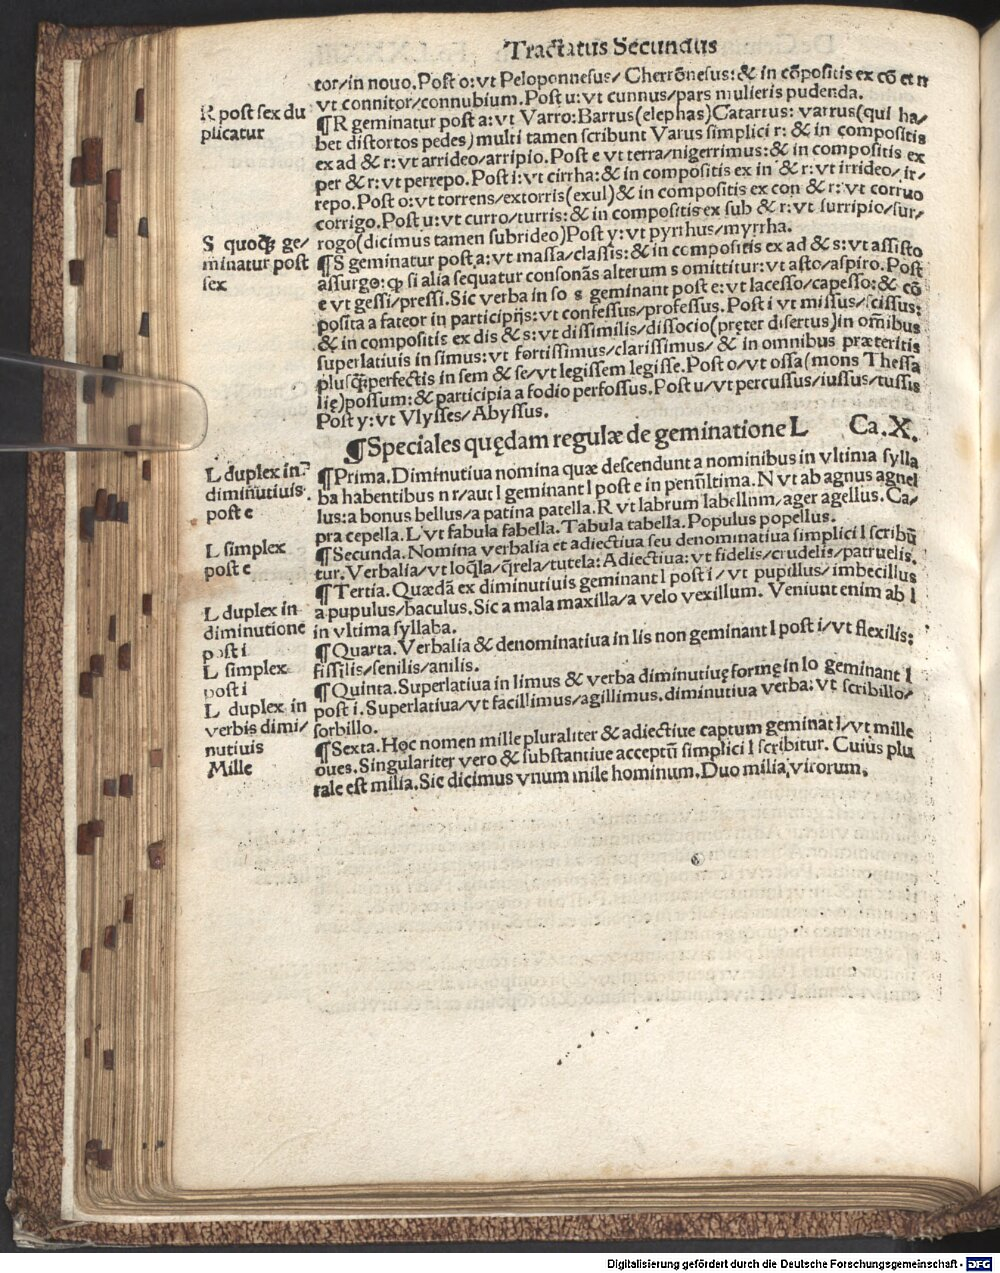 Tractatus Secundus
tor/in nouo. Post o: vt Peloponnesus/ Cherrõnesus: & in cõpositis ex cõ et n
vt connitor/connubium. Post u: vt cunnus/pars mulieris pudenda.
R post sex du
plicatur
¶R geminatur post a: vt Varro: Barrus(elephas)Catarrus: varrus(qui ha/
bet distortos pedes) multi tamen scribunt Varus simplici r: & in compositis
ex ad & r: vt arrideo/arripio. Post e vt terra/nigerrimus: & in compositis ex
per & r: vt perrepo. Post i: vt cirrha: & in compositis ex in & r: vt irrideo/ir/
repo. Post o: vt torrens/extorris(exul)& in compositis ex con & r: vt corruo
corrigo. Post u: vt curro/turris: & in compositis ex sub & r: vt surripio/sur/
rogo(dicimus tamen subrideo)Post y: vt pyrrhus/myrrha.
S quoqȝ ge/
minatur post
sex
¶S geminatur post a: vt massa/classis: & in compositis ex ad & s: vt assisto
assurgo: ꝙ si alia sequatur consonãs alterum s omittitur: vt asto/aspiro. Post
e vt gessi/pressi. Sic verba in so s geminant post e: vt lacesso/capesso: & cõ
posita a fateor in participijs: vt confessus/professus. Post i vt missus/scissus:
& in compositis ex dis & s: vt dissimilis/dissocio(preter disertus)in om̃ibus
superlatiuis in simus: vt fortissimus/clarissimus/ & in omnibus præteritis
plusq̃perfectis in sem & se/vt legissem legisse. Post o/vt ossa(mons Thessa
lię)possum: & participia a fodio perfossus. Post u/vt percussus/iussus/tussis
Post y: vt Vlysses/Abyssus.
¶Speciales quędam regulæ de geminatione L Ca.X.
L duplex in
diminutiuis
post e
¶Prima. Diminutiua nomina quæ descendunt a nominibus in vltima sylla
ba habentibus n r/aut l geminant l post e in penũltima. N vt ab agnus agnel
lus: a bonus bellus/a patina patella. R vt labrum labellum/ager agellus. Ca/
pra cepella. L vt fabula fabella. Tabula tabella. Populus popellus.
L simplex
post e
¶Secunda. Nomina verbalia et adiectiua seu denominatiua simplici l scribũ
tur. Verbalia/vt loq̃la/q̃rela/tutela: Adiectiua: vt fidelis/crudelis/patruelis.
L duplex in
diminutione
post i
¶Tertia. Quædã ex diminutiuis geminant l post i/ vt pupillus/imbecillus
a pupulus/baculus. Sic a mala maxilla/a velo vexillum. Veniunt enim ab l
in vltima syllaba.
L simplex
post i
¶Quarta. Verbalia & denominatiua in lis non geminant l post i/vt flexilis:
fissilis/senilis/anilis.
L duplex in
verbis dimi/
nutiuis
¶Quinta. Superlatiua in limus & verba diminutiuę formę in lo geminant l
post i. Superlatiua/vt facillimus/agillimus. diminutiua verba: vt scribillo/
sorbillo.
Mille
¶Sexta. Hoc nomen mille pluraliter & adiectiue captum geminat l/vt mille
oues. Singulariter vero & substantiue acceptũ simplici l scribitur. Cuius plu
rale est milia. Sic dicimus vnum mile hominum. Duo milia virorum.
Digitalisierung gefördert durch die Deutsche Forschungsgemeinschaft - DFG